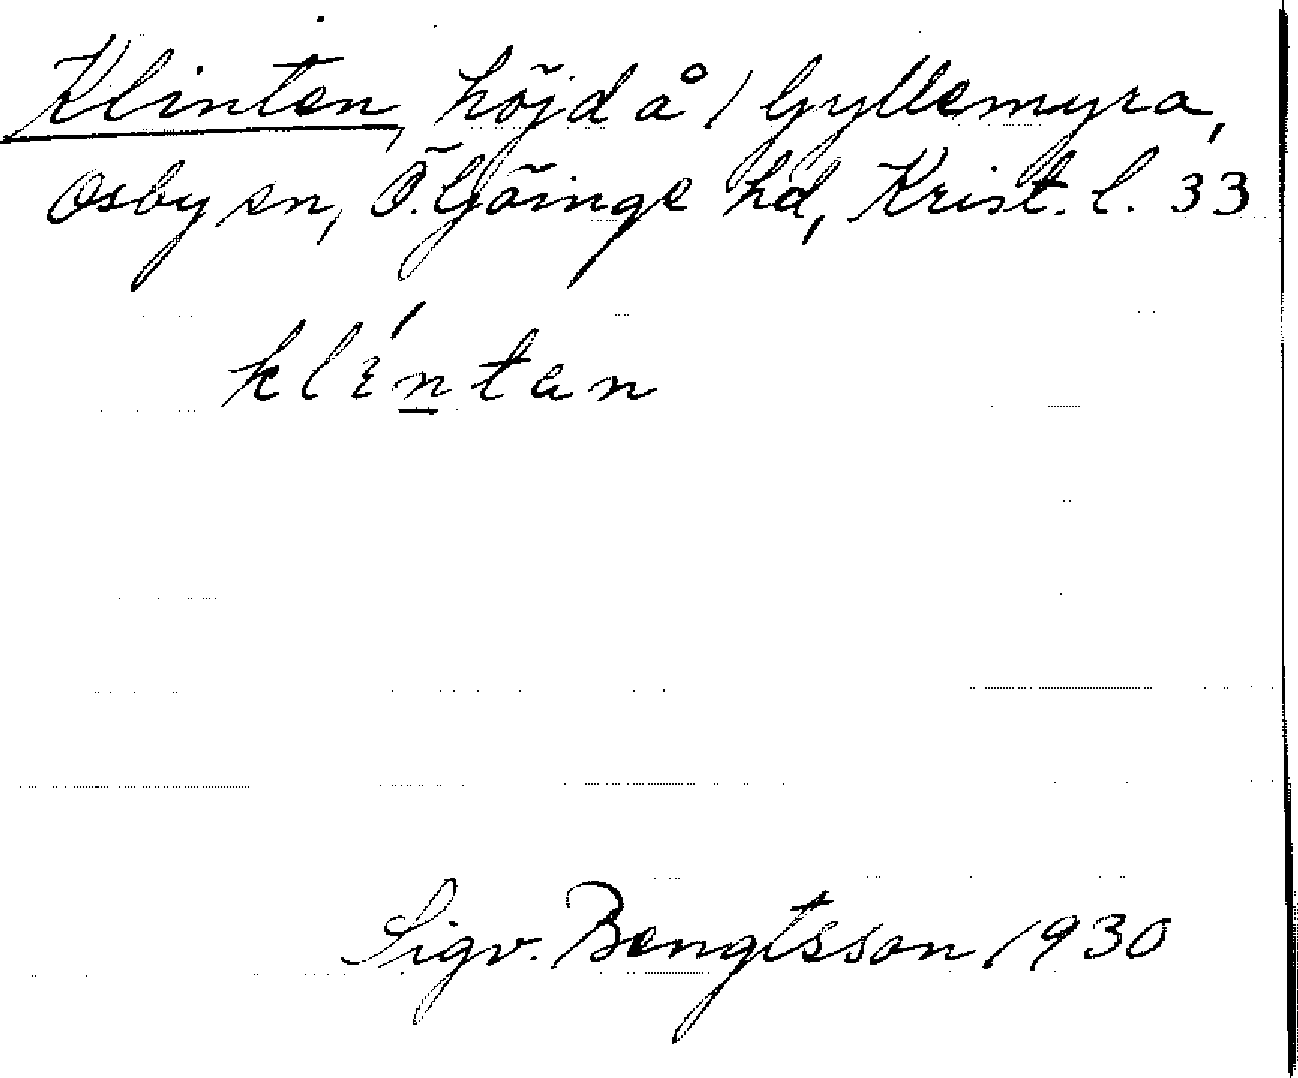 Klinten, höjd å 1 Gyllemyra,
Osby sn, Ö. Göinge hd, Krist. l. 33
klɛ́ntan
Sigv. Bengtsson 1930